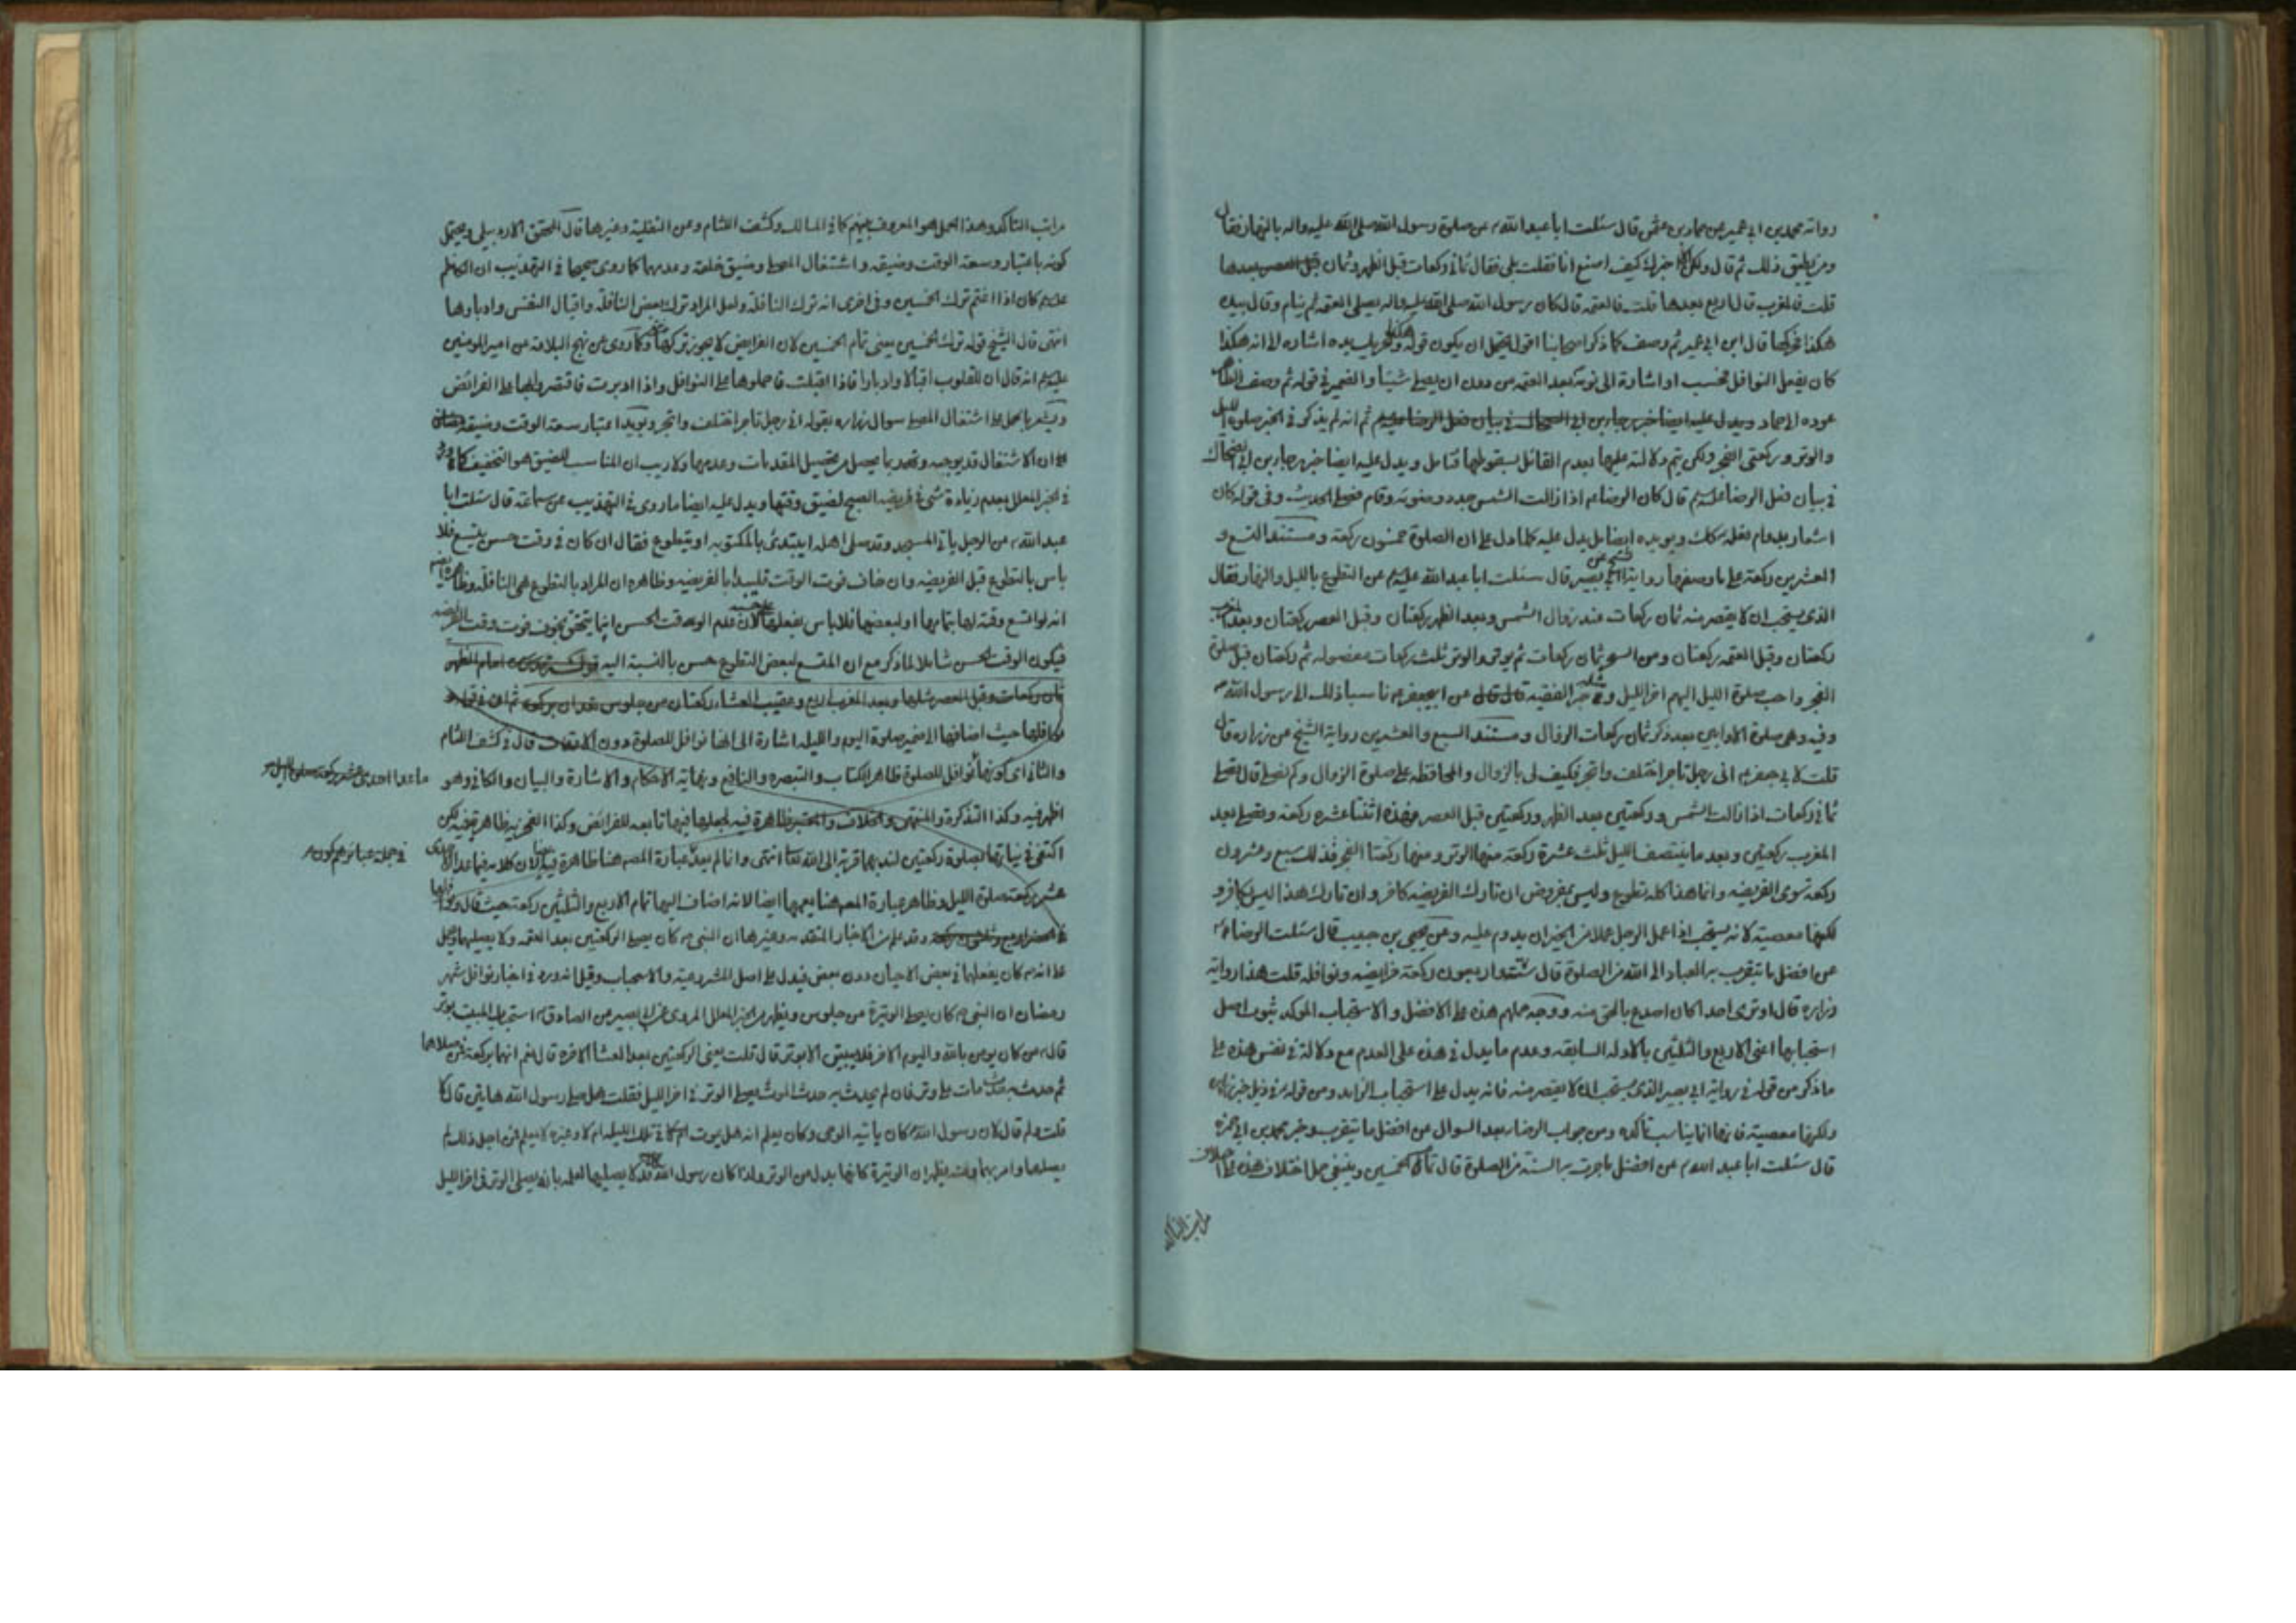 رواته محمد بن ابي عمير عن حماد بن عثمن قال سئلت ابا عبد الله عن صلوة رسول الله صلى الله عليه واله بالنهار فقال
ومن يطيق ذلك ثم قال ولكن الا اخبرك كيف اصنع انا فقلت بلى فقال ثماني ركعات قبل الظهر وثمان بعدها
قلت فالمغرب قال اربع بعدها قلت فالعتمه قال كان رسول الله صلى الله عليه واله يصلى العتمه ثم ينام وقال بيده
هكذا فحركها قال ابن ابي عمير ثم وصف كما ذكر اصحابنا اقول يحتمل ان يكون قوله وتحريك يده اشاره الى انه هكذا
كان يفعل النوافل فحسب او اشارة الى نومه بعد العتمه من دون ان يصلى شيئا والضمير في قوله ثم وصف
عوده الى حماد ويدل عليه ايضا خبر ثم انه لم يذكر في الخبر صلوة الليل
والوتر وركعتى الفجر ولكن يتم دلالته عليها بعدم القائل بسقوطها فتامل ويدل عليه ايضا خبر رجاء بن ابي الضحاك
في بيان فعل الرضا عليه السلم قال كان الرضا اذا زالت الشمس جدد وضوئه وقام فصلى الحديث وفى قوله كان
اشعار بدوام فعله كك ويؤيده ايضا بل يدل عليه كلما دل على ان الصلوة خمسون ركعة ومستند التسع و
العشرين ركعة على ما وصفها رواية ابي بصير قال سئلت ابا عبد الله عليه السلم عن التطوع بالليل والنهار فقال
الذى يستحب ان لا يقصر منه ثمان ركعات عند زوال الشمس وبعد الظهر ركعتان وقبل العصر ركعتان وبعد المغرب
ركعتان وقبل العتمه ركعتان ومن السحر ثمان ركعات ثم يوتر والوتر ثلث ركعات مفصوله ثم ركعتان قبل صلوة
الفجر واحب صلوة الليل اليهم اخر الليل وفي الفقيه قال عن ابي جعفر ناسبا ذلك الى رسول الله
وفيه وهى صلوة الاوابين بعد ذكر ثمان ركعات الزوال ومستند السبع والعشرين رواية الشيخ عن زراره قال
قلت لابي جعفر انى رجل تاجر اختلف واتجر فكيف لى بالزوال والمحافظه على صلوة الزوال وكم نصلى قال تصلى
ثماني ركعات اذا زالت الشمس وركعتين بعد الظهر وركعتين قبل العصر فهذه اثنتا عشره ركعة وتصلى بعد
المغرب ركعتين وبعد ما ينتصف الليل ثلث عشرة ركعة منها الوتر ومنها ركعتا الفجر فذلك سبع وعشرون
ركعه سوى الفريضه وانما هذا كله تطوع وليس بمفروض ان تارك الفريضه كافر وان تارك هذا ليس بكافر و
لكنها معصية لانه يستحب اذا عمل الرجل عملا من الخير ان يدوم عليه وعن يحيى بن حبيب قال سئلت الرضا
عن افضل ما يتقرب به العباد الى الله من الصلوة قال ستة واربعون ركعة فرايضه ونوافله قلت هذا رواية
زراره قال اوترى احدا كان اصدع بالحق منه ووجه حملهم هذه على الافضل والاستحباب المؤكد ثبوت اصل
استحبابها اعنى الاربع والثلثين بالادله السابقه وعدم ما يدل في هذه على العدم مع دلالة في نفس هذه على
ماذكر من قوله في رواية ابي بصير الذى يستحب ان لا يقصر منه فانه يدل على استحباب الزايد ومن قوله في ذيل خبر زراره
ولكنها معصية فانها انما يناسب تاكده ومن جواب الرضا بعد السوال عن افضل ما يتقرب وخبر محمد بن ابي حمزه
قال سئلت ابا عبد الله عن افضل ماجرت به السنة من الصلوة قال تمام الخمسين وينبغى حمل اختلاف هذه على اختلاف
مراتب التاكد
مراتب التاكد وهذا الحمل هو المعروف بينهم كما في المسالك وكشف اللثام وعن النفلية وغيرها قال المحقق الاردبيلى ويحتمل
كونه باعتبار وسعة الوقت وضيقه واشتغال المصلى وضيق خلقه وعدمها كما روى صحيحا في التهذيب ان الكاظم
عليه السلم كان اذا اغتم ترك الخمسين وفى اخرى انه ترك النافلة ولعل المراد ترك بعض النافلة واقبال النفس وادبارها
انتهى قال الشيخ قوله ترك الخمسين يعنى تمام الخمسين لان الفرايض لا يجوز تركها وكما روى عن نهج البلاغة عن امير المومنين
عليه السلم انه قال ان للقلوب اقبالا وادبارا فاذا اقبلت فاحملوها على النوافل واذا ادبرت فاقتصروا بها على الفرائض
ويشعر بالحمل على اشتغال المصلى سوال زراره بقوله انى رجل تاجر اختلف واتجر ويؤيد اعتبار سعة الوقت وضيقه
ان الاشتغال قد يوجبه ولا ريب ان المناسب للضيق هو التخفيف كما ورد
في الخبر المعلل بعدم زيادة شئ في فريضه الصبح لضيق وقتها ويدل عليه ايضا ما روى في التهذيب عن سماعة قال سئلت ابا
عبد الله عن الرجل ياتى المسجد وقد صلى اهله ايبتدئ بالمكتوبه او يتطوع فقال ان كان في وقت حسن فلا
باس بالتطوع قبل الفريضه وان خاف فوت الوقت فليبدأ بالفريضه وظاهره ان المراد بالتطوع هى النافلة وظاهره ايضا
انه لو اتسع وقته لها بتمامها او لبعضها فلا باس بفعلها لان عدم الوقت الحسن انما يتحقق بخوف فوت وقت الفريضه
فيكون الوقت الحسن شاملا لما ذكر مع ان المتسع لبعض التطوع حسن بالنسبة اليه امام الظهر
ثمان ركعات وقبل العصر مثلها وبعد المغرب اربع وعقيب العشاء ركعتان من جلوس تعدان بركعة ثم ان في قوله
نوافلها حيث اضافها الى ضمير صلوة اليوم والليله اشارة الى انها نوافل للصلوة دون الاوقات قال في كشف اللثام
والثاني اى كونها نوافل للصلوة ظاهر الكتاب والتبصره والنافع ونهاية الاحكام والاشارة والبيان والكافي وهو
ما عدا احدى عشر ركعة صلوة الليل
اظهر فيه وكذا التذكرة والمنتهى والخلاف والمعتبر ظاهرة فيه لجعلها فيها تابعه للفرائض وكذا الفخريه ظاهر فيه لكن
اكتفى في نياتها بصلوة ركعتين لندبهما قربة الى الله تعالى انتهى عبارة المصه هنا ظاهرة فيه لان كلامه فيما عدا الاحدى
عشر ركعة صلوة الليل وظاهر عبارة المصه هنا يعمها ايضا لانه اضاف اليها تمام الاربع والثلثين ركعة حيث قال ونوافلها
وقد علم من الاخبار المتقدمه وغيرها ان النبى كان يصلى الركعتين بعد العتمه ولا يصليهما وحمل
على انه كان يفعلها في بعض الاحيان دون بعض فيدل على اصل المشروعية والاستحباب وقيل انه ورد في اخبار نوافل شهر
رمضان ان النبى كان يصلى الوتيرة من جلوس ويظهر من الخبر المعلل المروى عن ابي بصير عن الصادق استحباب المبيت بوتر
قال من كان يومن بالله واليوم الاخر فلا يبيتن الا بوتر قال قلت يعنى الركعتين بعد العشا الاخره قال نعم انهما بركعة فمن صلاهما
ثم حدث به حدث مات على وتر فان لم يحدث به حدث الموت يصلى الوتر في اخر الليل فقلت هل صلى رسول الله هاتين قال لا
قلت ولم قال لان رسول الله كان ياتيه الوحى وكان يعلم انه هل يموت ام لا في تلك الليله ام لا وغيره لا يعلم فمن اجل ذلك لم
يصلهما وامر بهما ومنه يظهر ان الوتيرة كانها بدل من الوتر ولذا كان رسول الله لا يصليهما لعلمه بانه يصلى الوتر في اخر الليل